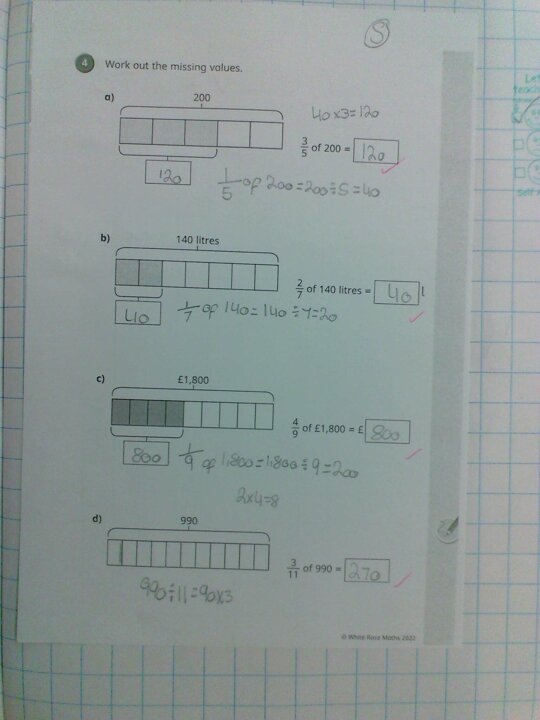 S
4 Work out the missing values.
a)
200
40×3=120
3/5 of 200 = 120
120
1/5 of 200=200÷5=40
b)
140 litres
2/7 of 140 litres = 40 l
40
1/7 of 140=140÷7=20
c)
£1,800
4/9 of £1,800 = £ 800
800
1/9 of 1,800=1,800÷9=200
2×4=8
d)
990
3/11 of 990 = 270
990÷11=90×3
© White Rose Maths 2022